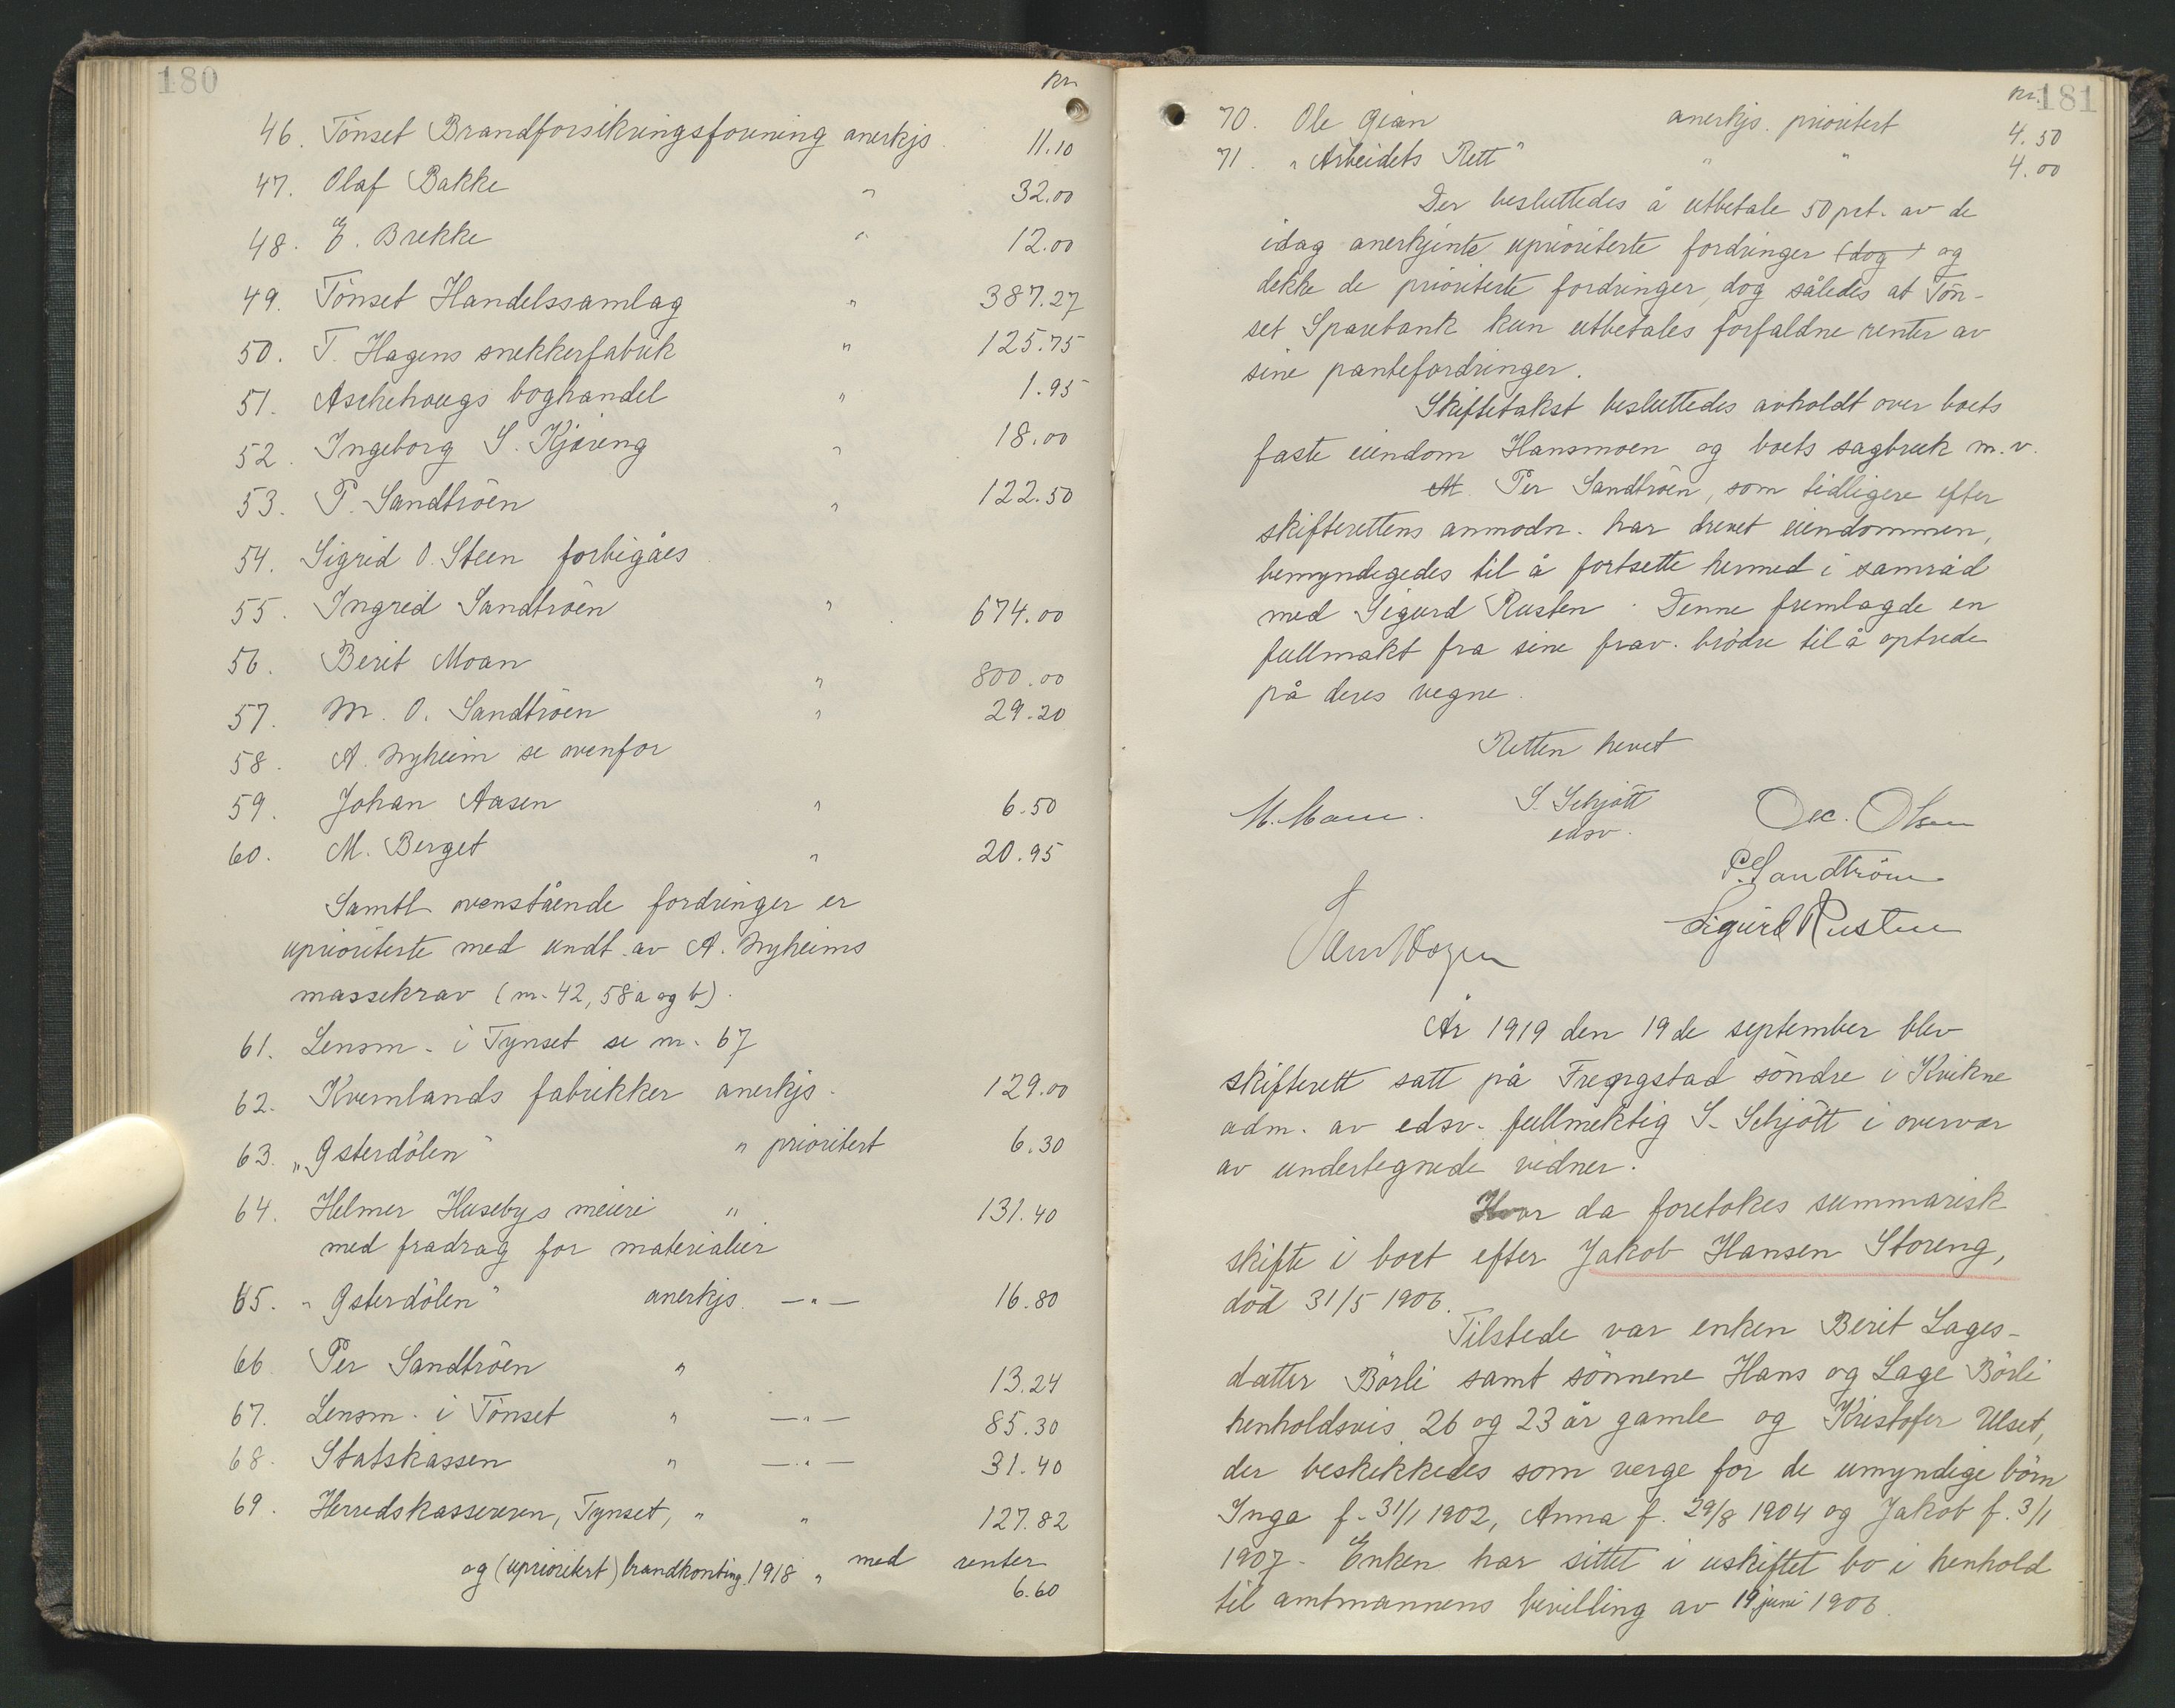 180
Kr.
46. Tönset Brandforsikringsforening anerkjs. 11.10
47. Olaf Bakke " 32.00
48. E. Brekke " 12.00
49. Tönset Handelssamlag " 387.27
50. T. Hagens snekkerfabrik " 125.75
51. Aschehougs boghandel " 1.95
52. Ingeborg S. Kjøreng " 18.00
53. P. Sandtröen " 122.50
54. Sigrid O. Steen forbigåes
55. Ingrid Sandtröen " 674.00
56. Berit Moan " 800.00
57. M. O. Sandtröen " 29.20
58. A. Nyheim se ovenfor
59. Johan Aasen " 6.50
60. M. Berget " 20.95
Samtl. ovenstående fordringer er
uprioriterte med undt. av A. Nyheims
massekrav (nr. 42, 58 a og b).
61. Lensm. i Tynset se nr. 67
62. Kvernlands fabrikker anerkjs. 129.00
63. "Østerdölen" " prioritert 6.30
64. Helmer Husebys meieri " 131.40
med fradrag for materialier
65. "Østerdölen" anerkjs. —"— 16.80
66. Per Sandtröen " 13.24
67. Lensm. i Tönset " —"— 85.30
68. Statskassen " —"— 31.40
69. Herredskassereren, Tynset, " " 127.82
og (uprioritert) brandkonting. 1918 " med renter
6.60
181
Kr.
70. Ole Gian anerkjs. prioritert 4.50
71. "Arbeidets Rett" " " 4.00
Der besluttedes å utbetale 50 pct. av de
idag anerkjente uprioriterte fordringer (dog) og
dekke de prioriterte fordringer, dog således at Tön-
set Sparebank kun utbetales forfaldne renter av
sine pantefordringer.
Skiftetakst besluttedes avholdt over boets
faste eiendom Hansmoen og boets sagbruk m.v.
M. Per Sandtröen, som tidligere efter
skifterettens anmodn. har drevet eiendommen,
bemyndigedes til å fortsette hermed i samråd
med Sigurd Rusten. Denne fremlagde en
fullmakt fra sine frav. brödre til å optrede
på deres vegne.
Retten hevet
M. Moan. S. Schjött Osc. Olsen
edsv.
P. Sandtröen.
Sigurd Rusten
År 1919 den 19de september blev
skifterett satt på Frengstad söndre i Kvikne
adm. av edsv. fullmektig S. Schjött i overvær
av undertegnede vidner.
Hvor da foretokes summarisk
skifte i boet efter Jakob Hansen Storeng,
död 31/5 1906.
Tilstede var enken Berit Lages-
datter Börli samt sönnene Hans og Lage Börli
henholdsvis 26 og 23 år gamle og Kristofer Ulset,
der beskikkedes som verge for de umyndige börn
Inga f. 31/1 1902, Anna f. 29/8 1904 og Jakob f. 3/1
1907. Enken har sittet i uskiftet bo i henhold
til amtmannens bevilling av 19 juni 1906.